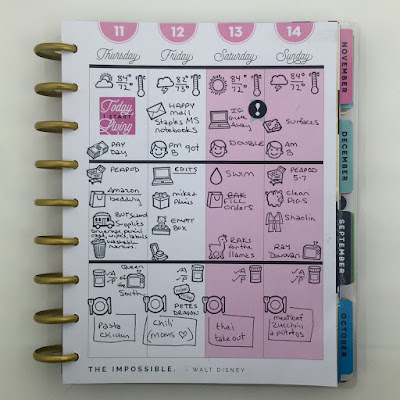 11 12 13 14
Thursday Friday Saturday Sunday
84° 82° 84° 84°
72° 73° 72° 72°
Today
I START
Living
HAPPY
mail
Staples MS
notebooks
IG
Give
Away
Surfaces
PAY
DAY
Am
B
got
DOUBLE
Am
B
PEAPOD
EDITS
Swim
PEAPOD
5-7
Amazon
bedding
FILL
Orders
Clean
BUJ Sword
Supplies
EMPTY
BOX
Shaolin
RAKs
for the
llamas
RAY
Donovan
Queen
of the
South
PETES
DRAGON
Pasta
Chicken
Chili
(moms ♡)
thai
takeout
meatloaf
Zucchini
+ potatoes
THE IMPOSSIBLE. - WALT DISNEY
NOVEMBER
DECEMBER
SEPTEMBER
OCTOBER